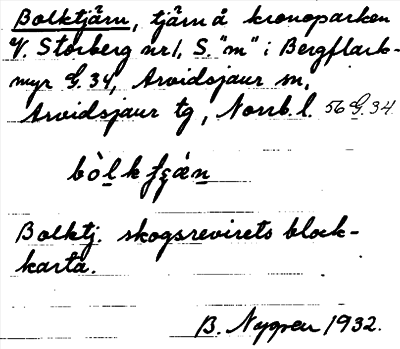 Bolktjärn, tjärn å kronoparken
V. Storberg nr 1, S. "m" i Bergflark-
myr G. 34, Arvidsjaur sn,
Arvidsjaur tg, Norrb. l. 56 G. 34
Bolktj. skogsrevirets block-
karta.
B. Nygren 1932.